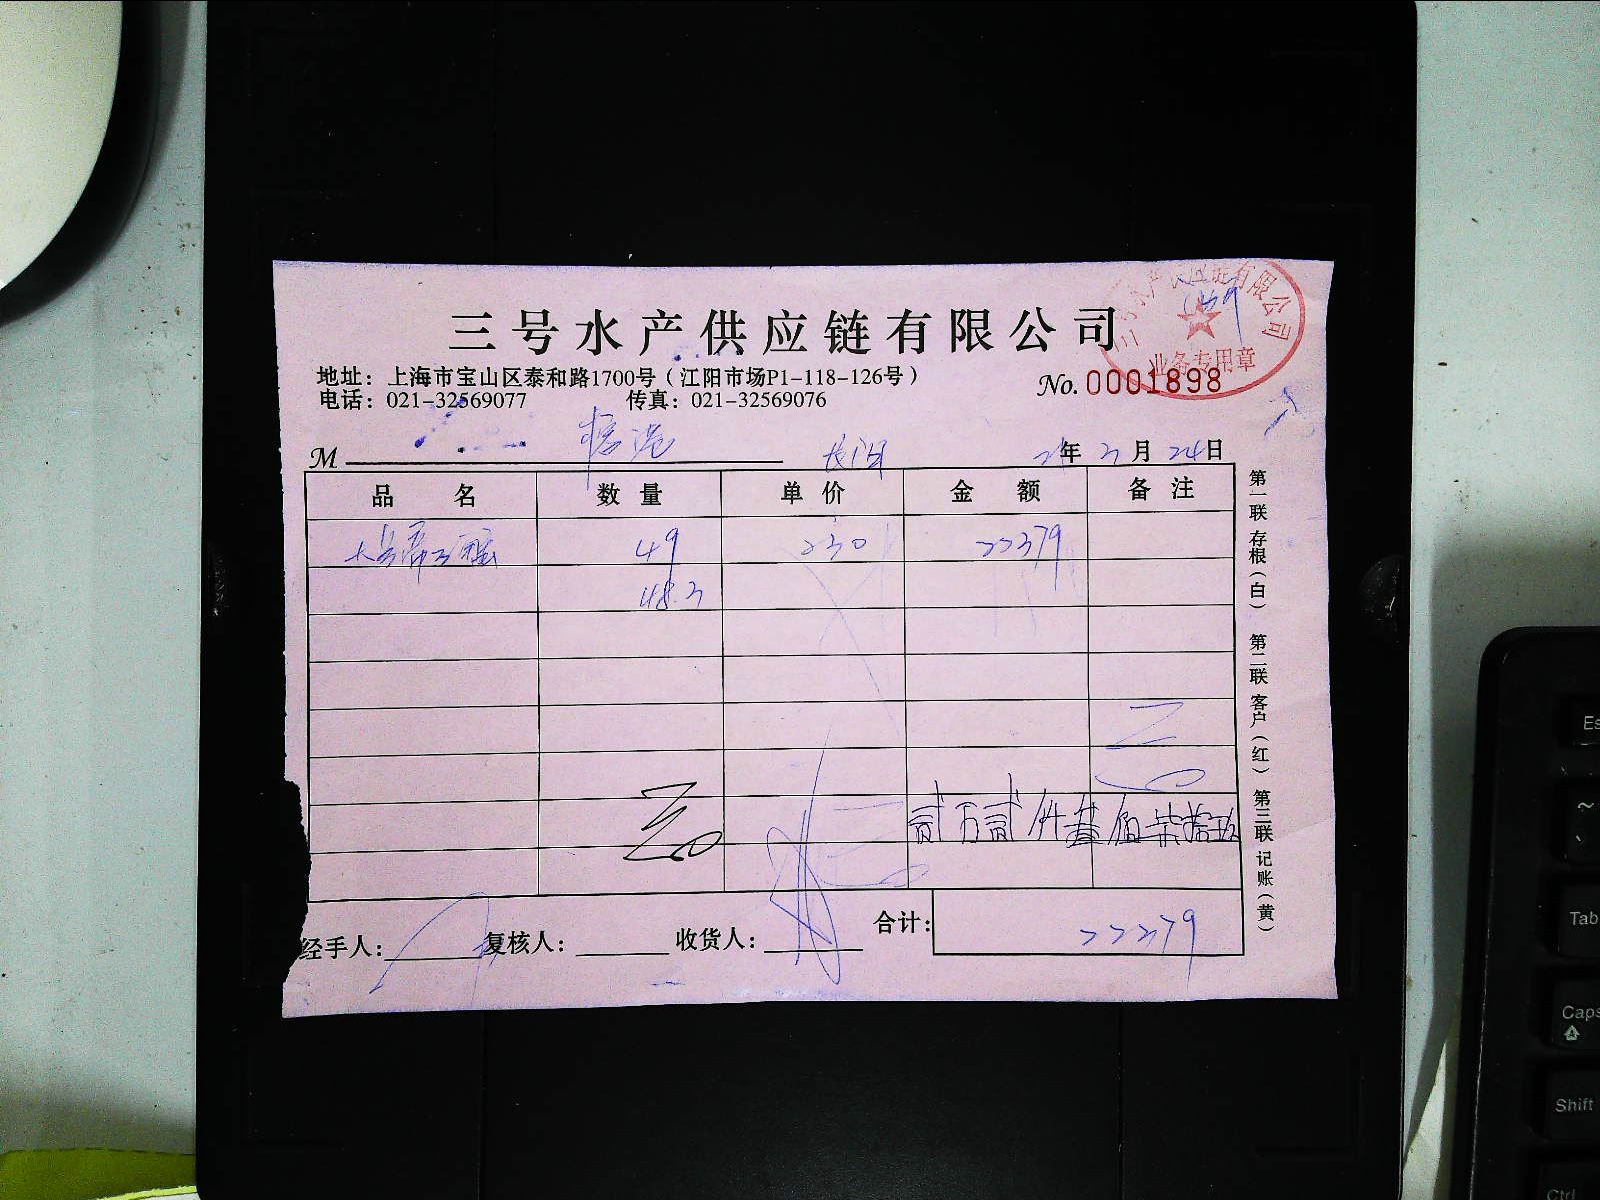 三号水产供应链有限公司
地址：上海市宝山区泰和路1700号（江阳市场P1-118-126号）
No. 0001898
电话：021-32569077 传真：021-32569076
业务专用章
M 年 月 24日
品名 数量 单价 金额 备注
49 230 22379
48.3
贰万贰仟叁佰柒拾玖
合计： 22379
经手人： 复核人： 收货人：
第一联 存根（白） 第二联 客户（红） 第三联 记账（黄）
Es
~
Tab
Caps
Shift
Ctrl